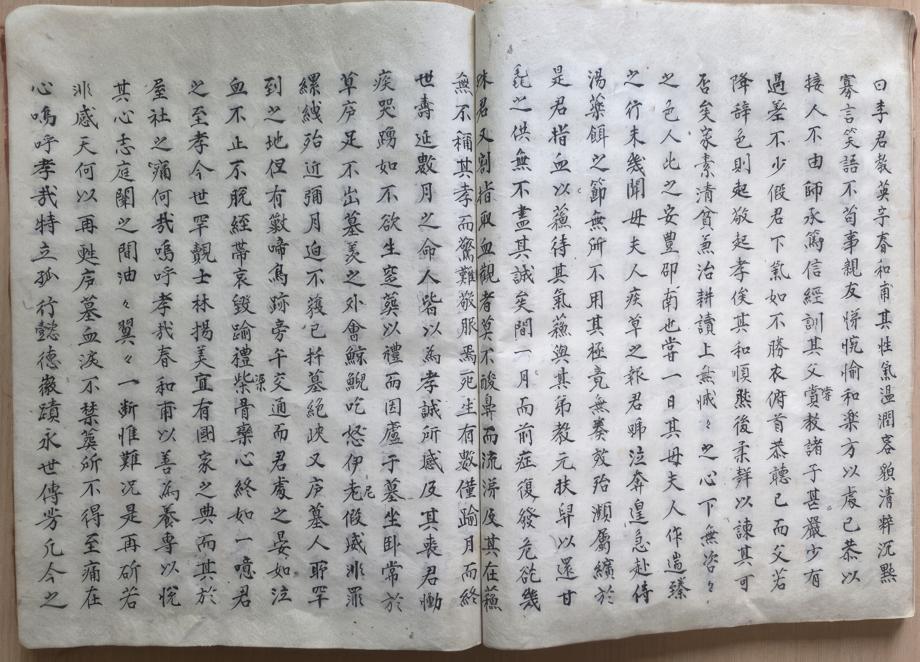 曰李君教英字春和甫其性氣温潤容貌清粹沉黙
寡言笑語不苟事親友悌怳愉和楽方以處已恭以
接人不由師承篤信經訓其父嘗教諸子甚嚴少有
過差不少假君下氣如不勝衣俯首恭聽已而父若
降辞色則起敬起孝俟其和順然後柔聲以諫其可
否矣家素清貧兼治耕讀上無憾々之心下無咨々
之色人比之安豊邵南也嘗一日其母夫人作遠臻
之行未幾聞母夫人疾草之報君號泣奔遑急赴侍
湯藥餌之節無所不用其極竟無奏效殆瀕屬纊於
是君指血以蘓待其氣蘓與其弟教元扶舁以還甘
毳之供無不盡其誠矣間一月而前症復發危欲幾
殊君又割指取血観者莫不酸鼻而流涕及其在蘓
無不稱其孝而驚難敬服焉死生有數僅踰月而終
世壽延數月之命人皆以為孝誠所感及其喪君慟
疾哭踴如不欲生窆葬以禮而因廬于墓坐卧常於
草庐足不出墓羡之外會鯨鯢吃怒伊老假威非罪
縲絏殆近彌月迫不獲已扞墓絶峽又庐墓人耶罕
到之地但有獸啼鳥跡旁午交通而君處之晏如泣
血不止不脫絰帯哀毀踰禮柴骨欒心終如一噫君
之至孝今世罕覿士林揚美宜有國家之典而其於
屋社之痛何哉嗚呼孝哉春和甫以善為養專以悅
其心志庭闈之間油々翼々一断惟難况是再斫若
非感天何以再甦庐墓血淚不禁葬所不得至痛在
心嗚呼孝哉特立孤行懿德徽蹟永世傳芳凡今之